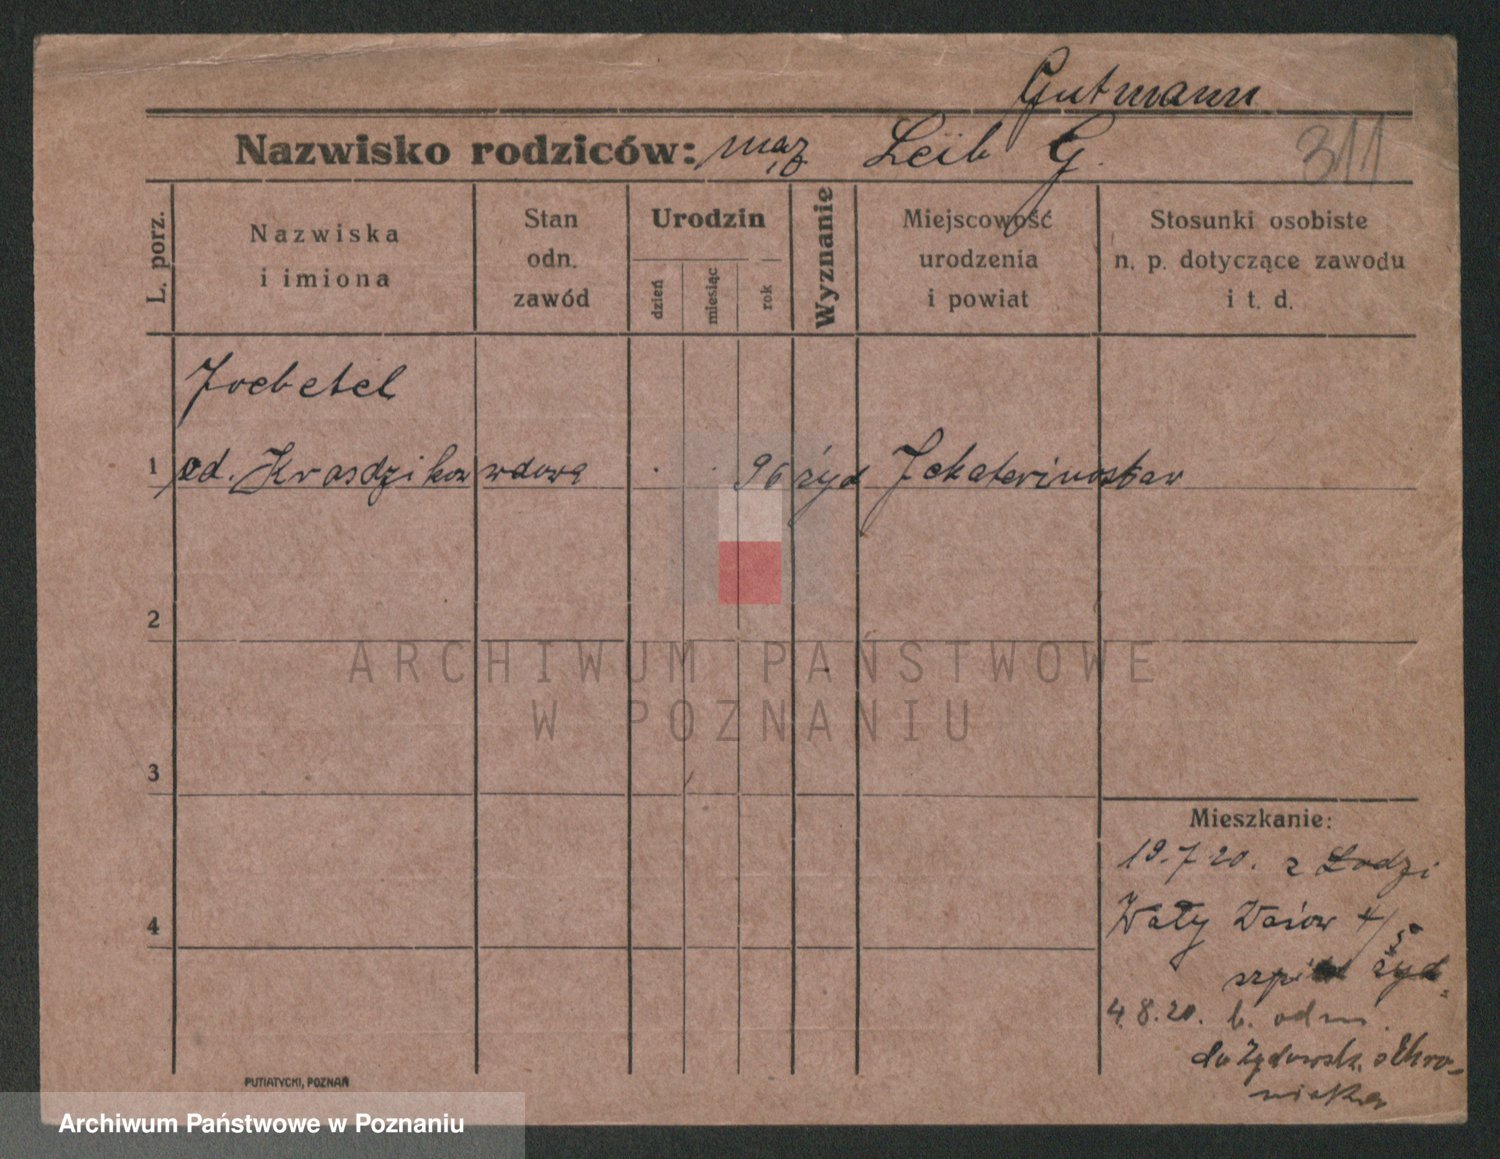 Gutmann
Nazwisko rodziców: mąż Leib G.
311
L. porz.
Nazwiska
i imiona
Stan
odn.
zawód
Urodzin
dzień
miesiąc
rok
Wyznanie
Miejscowość
urodzenia
i powiat
Stosunki osobiste
n. p. dotyczące zawodu
i t. d.
1
wdowa
96
żyd
Jekaterinosław
2
ARCHIWUM PAŃSTWOWE
W POZNANIU
3
Mieszkanie:
19.7.20. z Łodzi
4
Wały 4/5
żyd.
4.8.20. b. odm.
do żydowsk.
PUTIATYCKI, POZNAŃ
Archiwum Państwowe w Poznaniu